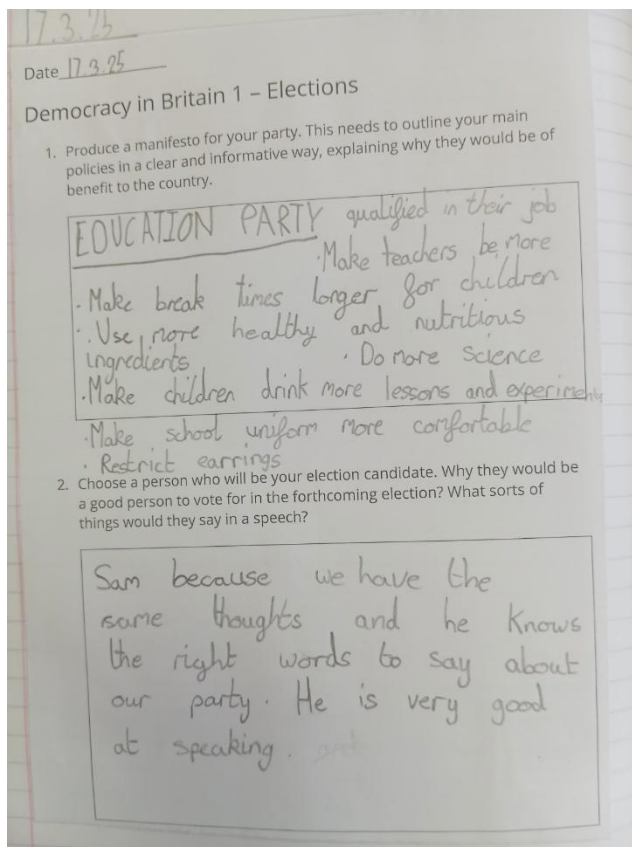 17.3.25
Date 17.3.25
Democracy in Britain 1 – Elections
1. Produce a manifesto for your party. This needs to outline your main
policies in a clear and informative way, explaining why they would be of
benefit to the country.
EDUCATION PARTY qualified in their job
· Make teachers be more
· Make break times longer for children
· Use more healthy and nutritious
ingredients
· Do more science
· Make children drink more lessons and experiments
· Make school uniform more comfortable
· Restrict earrings
2. Choose a person who will be your election candidate. Why they would be
a good person to vote for in the forthcoming election? What sorts of
things would they say in a speech?
Sam because we have the
same thoughts and he knows
the right words to say about
our party. He is very good
at speaking.